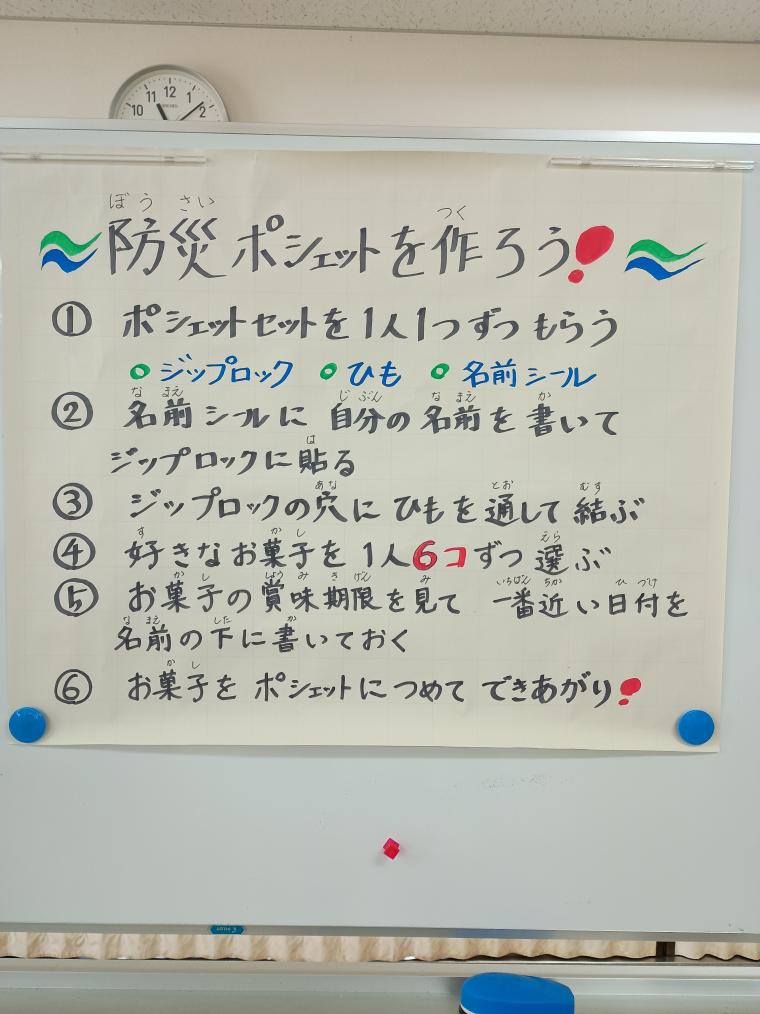 10 11 12 1 2
ぼうさい つく
防災ポシェットを作ろう!
① ポシェットセットを1人1つずつもらう
ジップロック ひも 名前シール
な まえ じ ぶん な まえ か
② 名前シールに 自分の名前を書いて
は
ジップロックに貼る
あな とお むす
③ ジップロックの穴に ひもを通して結ぶ
す か し えら
④ 好きなお菓子を 1人6コずつ選ぶ
か し しょう み き げん み いちばん ちか ひ づけ
⑤ お菓子の賞味期限を見て 一番近い日付を
な まえ した か
名前の下に書いておく
か し
⑥ お菓子を ポシェットにつめて できあがり!